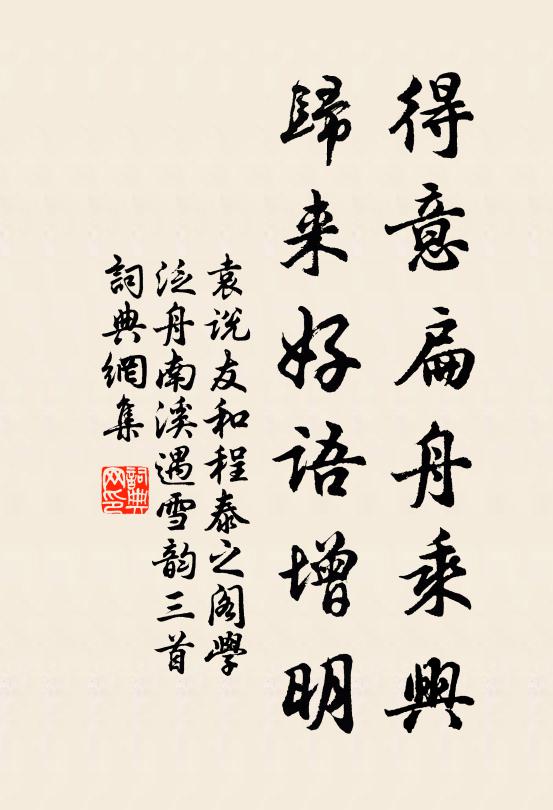 得意扁舟乘興
歸来好语增明
袁说友和程泰之阁學
泛舟南溪遇雪韵三首
詞典網集
詞典网印